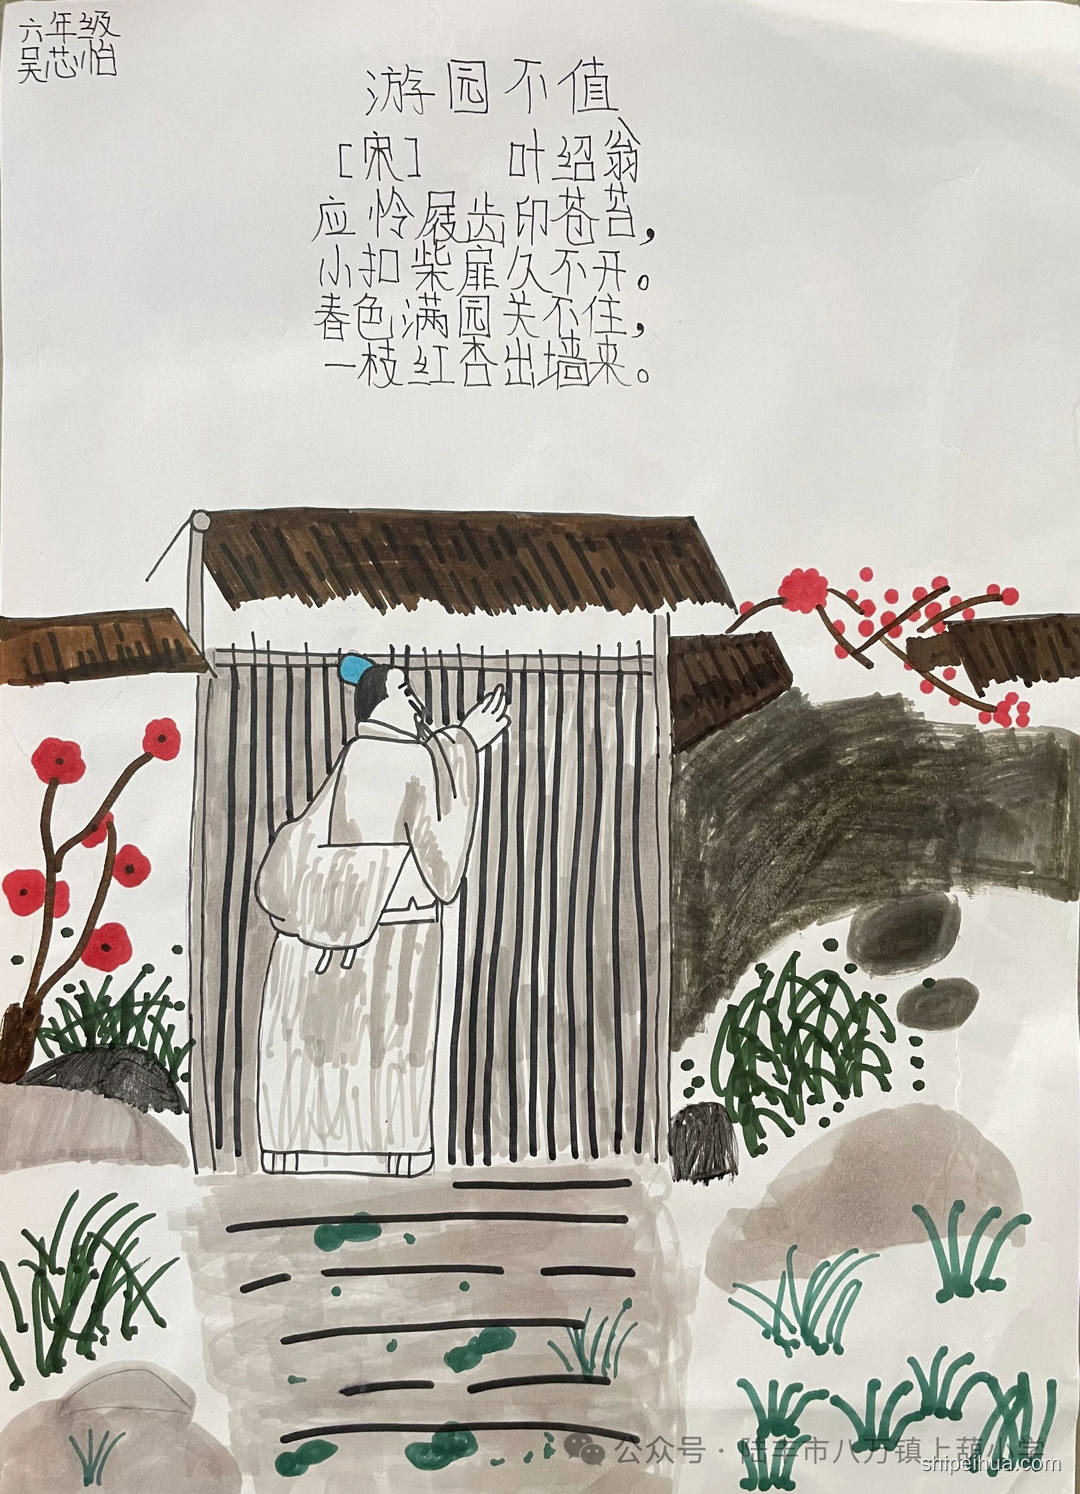 六年级
吴芯怡
游园不值
[宋] 叶绍翁
应怜屐齿印苍苔，
小扣柴扉久不开。
春色满园关不住，
一枝红杏出墙来。
公众号·陆丰市八万镇上葫小学
shipeihua.com